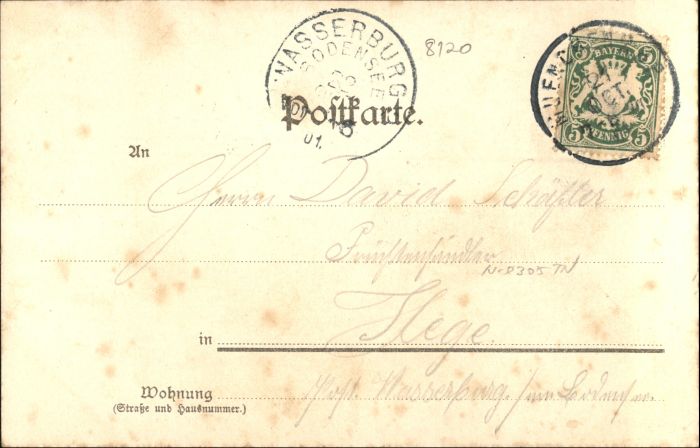 WASSERBURG
BODENSEE
01.
8120
5 BAYERN 5
5 PFENNIG 5
Postkarte.
An
Herrn David Schäfler
N-8305 TN
Hege.
in
Wohnung
(Straße und Hausnummer.)
Post Wasserburg